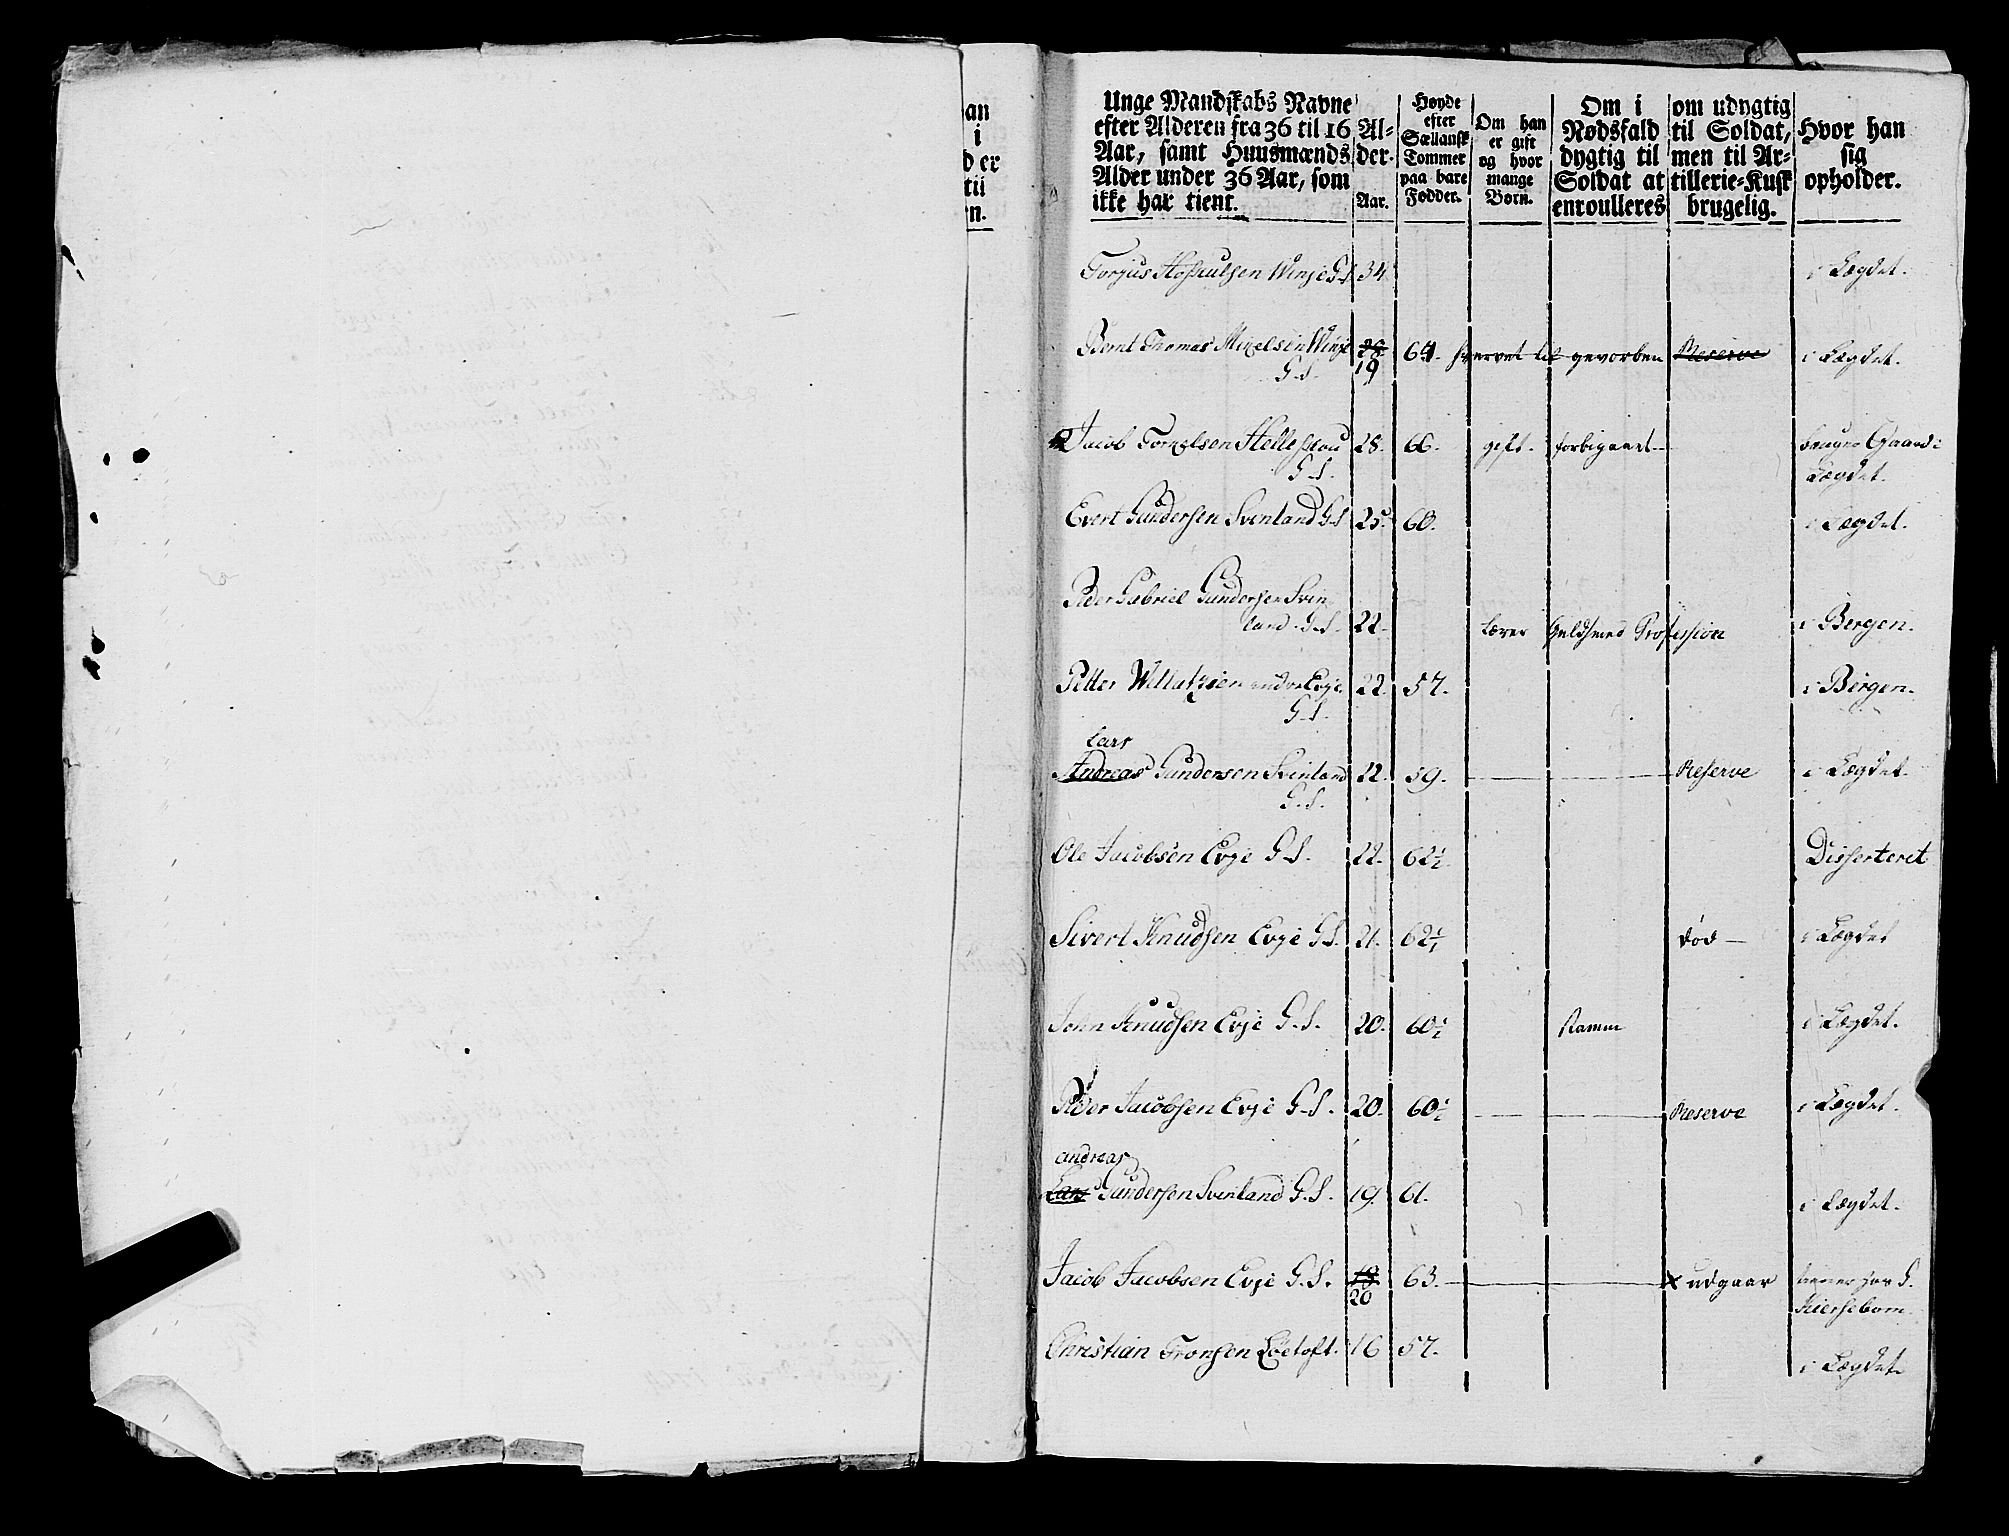 an
i
d er
til
n.
Unge Mandskabs Navne
efter Alderen fra 36 til 16
Aar, samt Huusmænds
Alder under 36 Aar, som
ikke har tient.
Al-
der.
Aar.
Høyde
efter
Sællansk
Tommer
paa bare
Fødder.
Om han
er gift
og hvor
mange
Børn.
Om i
Nødsfald
dygtig til
Soldat at
enroulleres
om udygtig
til Soldat,
men til Ar-
tillerie-Kusk
brugelig.
Hvor han
sig
opholder.
Torjus Winje G.S. 34. i Lægdet.
Bernt Thomas Mikelsen Winje 28 64. hvervet til gevorben Reserve i Lægdet.
G.S. 19
Jacob Tørkelsen Helle 28. 66. gift. forbigaaet bruger Gaard i
G.S. Lægdet.
Evert Gundersen Svinland G.S. 25. 60. i Lægdet.
Peder Gabriel Gundersen Svin
land. G.S. 22. lærer Guldsmed Profession i Bergen.
Petter Willatzien Evje. 22. 57. i Bergen.
G.S.
Lars
Andreas Gundersen Svinland 22. 59. Reserve i Lægdet.
G.S.
Ole Jacobsen Evje G.S. 22. 62½ Disserteret
Sivert Knudsen Evje G.S. 21. 62½ død i Lægdet
John Knudsen Evje G.S. 20. 60½ Ramm i Lægdet.
Peder Jacobsen Evje G.S. 20. 60½ Reserve i Lægdet.
andreas
Lars Gundersen Svinland G.S. 19. 61. i Lægdet.
Jacob Jacobsen Evje G.S. 18 63. x udgaar tiener hos S.
20 Kiersebom.
Christian Tronsen Løetoft. 16 57. i Lægdet.